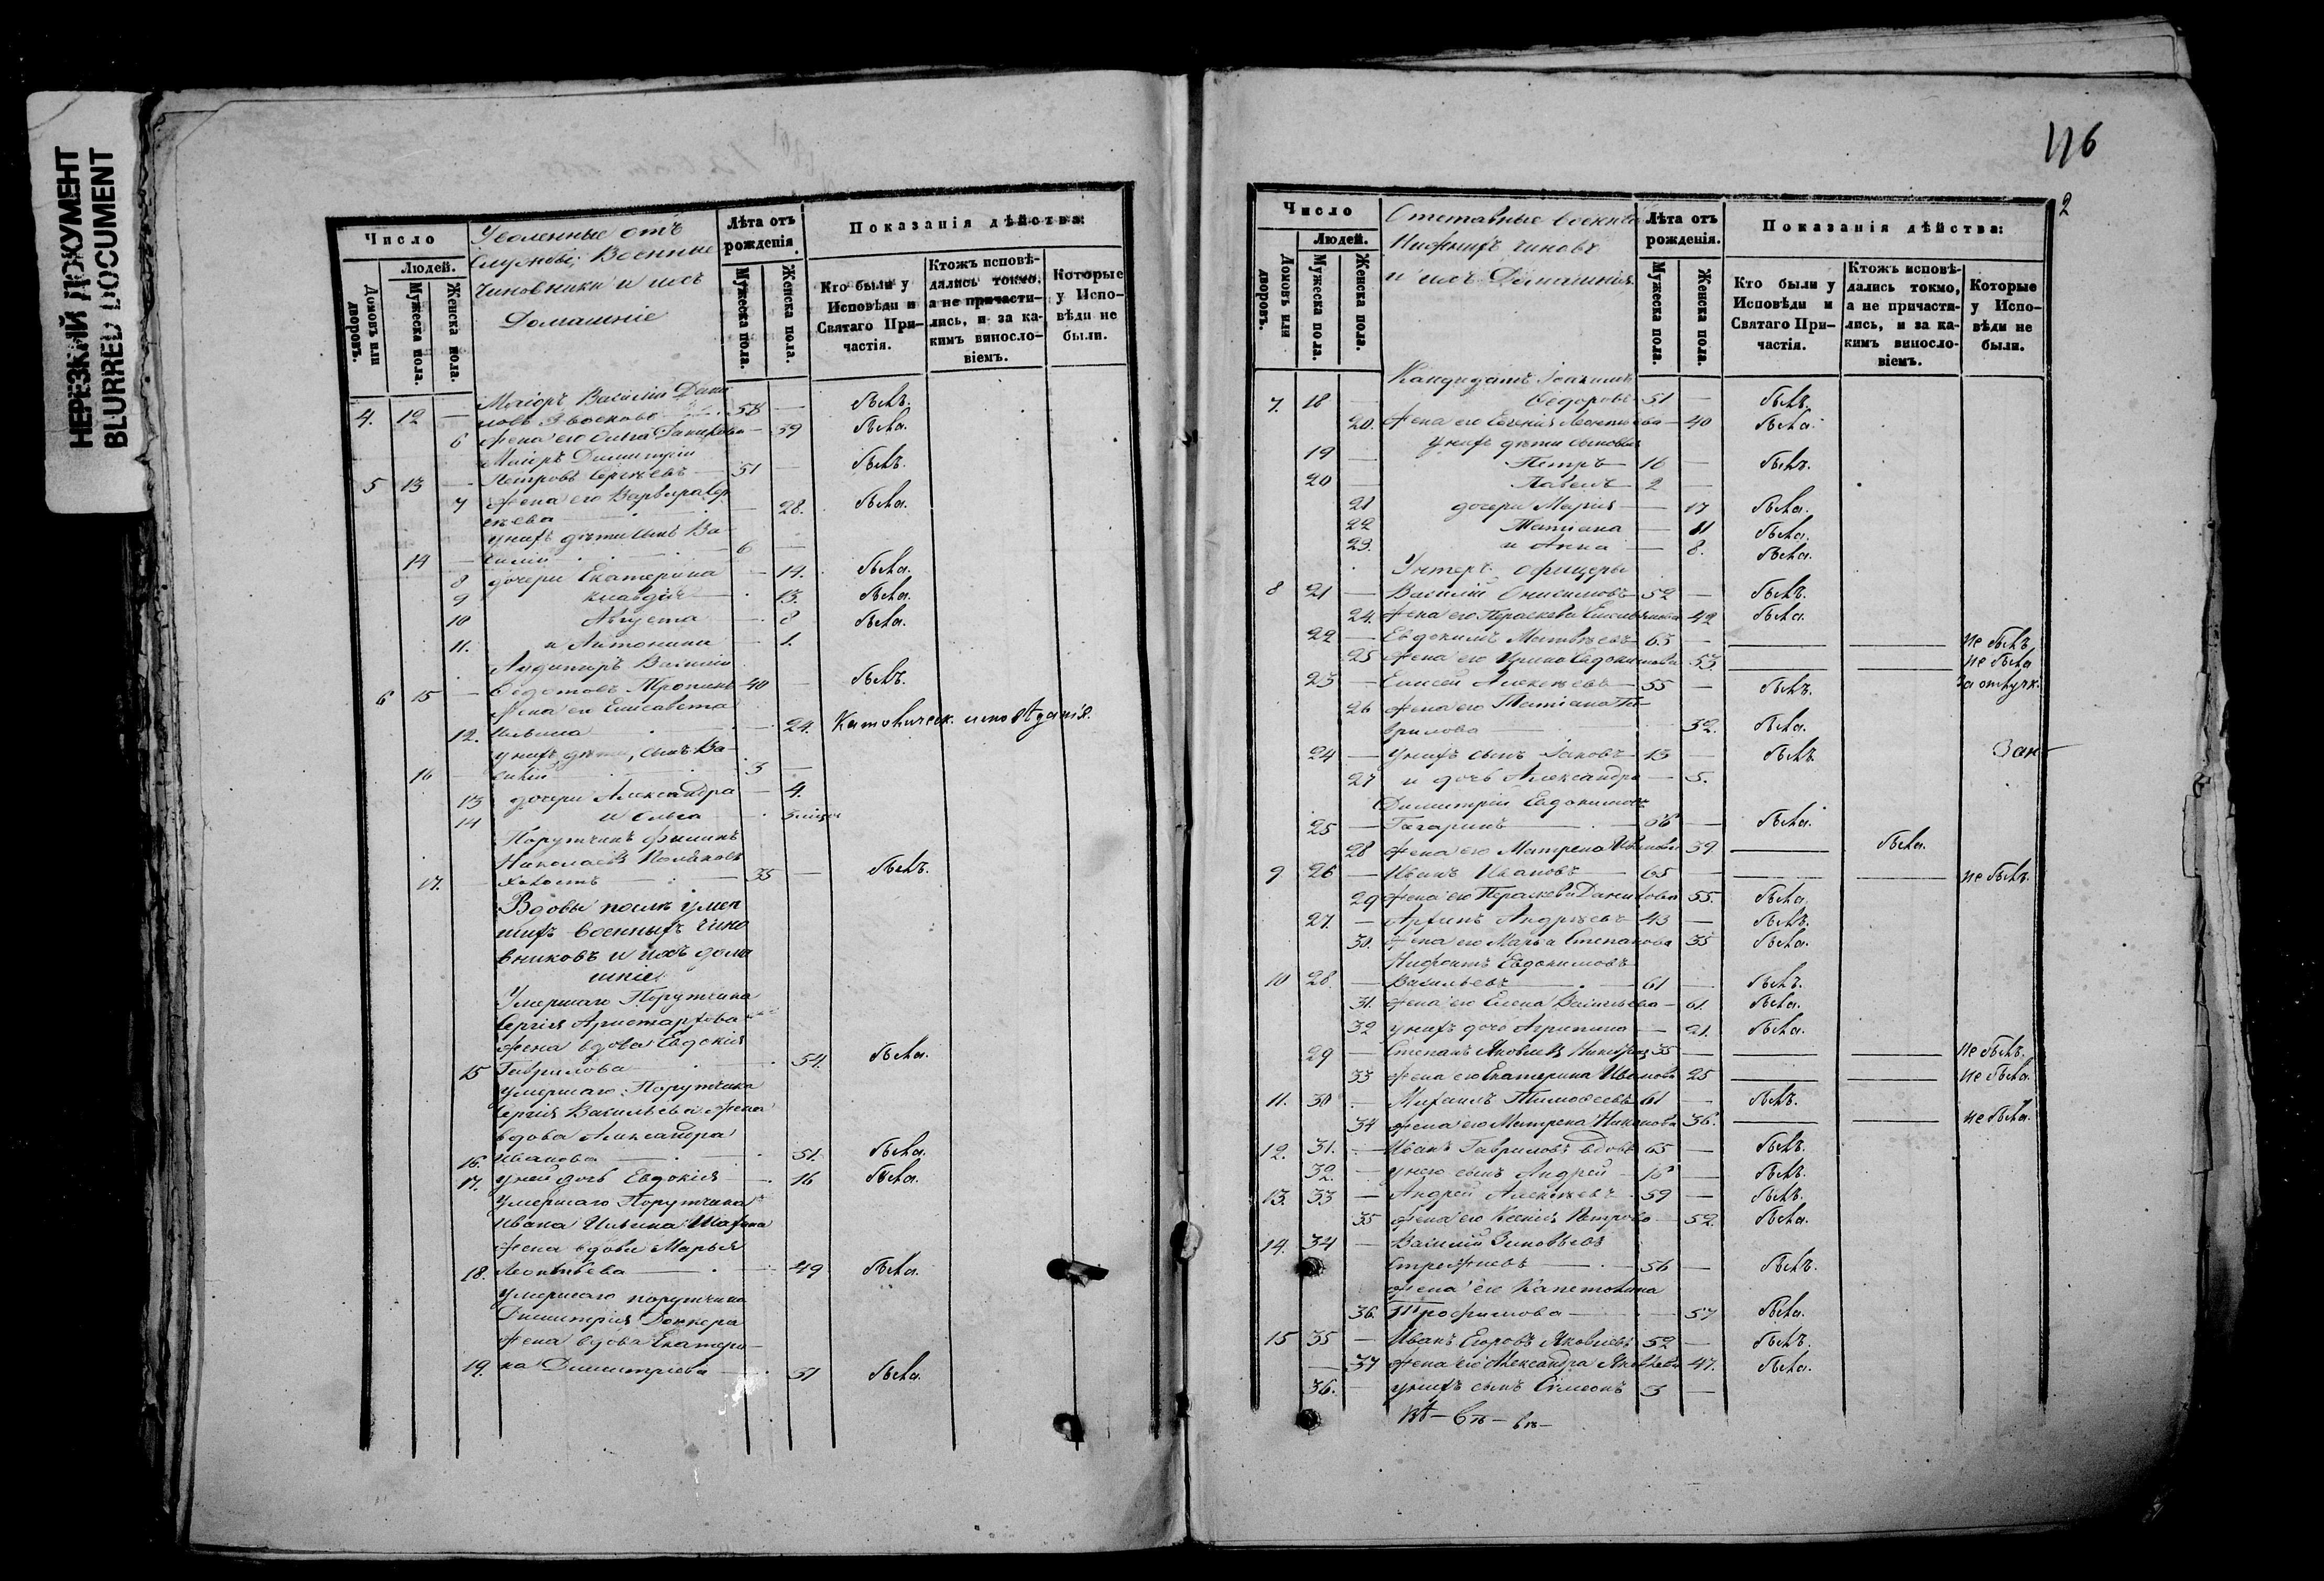 НЕРЕЗКИЙ ДОКУМЕНТ
BLURRED DOCUMENT
Число
Людей.
Домовъ или дворовъ.
Мужеска пола.
Женска пола.
Уволенные отъ
службы Военные
чиновники и ихъ
Домашніе
Лѣта отъ рожденія.
Мужеска пола.
Женска пола.
Показанія дѣйства:
Кто были у Исповѣди и Святаго Причастія.
Ктожъ исповѣдались токмо, а не причастились, и за какимъ винословіемъ.
Которые у Исповѣди не были.
Маіоръ Василій Дани
4. 12 — ловъ 58 — былъ.
6 жена его Ольга 59 была.
Маіоръ Димитрій
5 13 — Петровъ Сергѣевъ 51 — былъ.
7 жена его Варвара Сер
гѣева — 28. была.
у нихъ дѣти сынъ Ва
14 — силій 6 —
8 дочери Екатерина — 14. была.
9 Клавдія 13. была.
10 Августа — 8 была.
11. и Антонина — 1.
Аудиторъ Василій
6 15 — Ѳедотовъ 40 — былъ.
жена его Елисавета
12. Ильина — 24. Католическ. исповѣданія.
у нихъ дѣти, сынъ Ва-
16 силій 3 —
13 дочери Александра — 4.
14 и Ольга
Поручикъ Филипъ
Николаевъ Поляковъ
17. — холостъ 35 — былъ.
Вдовы послѣ умер
шихъ военныхъ чино
вниковъ и ихъ дома
шніе.
Умершаго Поручика
Сергія Аристархова
жена вдова Евдокія
15 Гаврилова 54. была.
Умершаго Поручика
Сергія Васильева жена
вдова Александра
16. Иванова 51. была.
17. у ней дочь Евдокія 16 была.
Умершаго Поручика
Ивана Ильина
жена вдова Марья
18. Леонтьева 49 была.
Умершаго поручика
Димитрія
жена вдова Екатери-
19. на Димитріева 51 была.
116
2
Число
Людей.
Домовъ или дворовъ.
Мужеска пола.
Женска пола.
Отставные военные
Нижнихъ чиновъ
и ихъ Домашнія
Лѣта отъ рожденія.
Мужеска пола.
Женска пола.
Показанія дѣйства:
Кто были у Исповѣди и Святаго Причастія.
Ктожъ исповѣдались токмо, а не причастились, и за какимъ винословіемъ.
Которые у Исповѣди не были.
Кандидатъ
7. 18 — Ѳедоровъ 51 — былъ.
20. жена его Евгенія Леонтьева — 40 была.
у нихъ дѣти сыновья
19 — Петръ 16 — былъ.
20 — Павелъ 2 —
21 дочери Марія — 17 была.
22 Татіана — 11 была.
23. и Анна — 8. была.
Унтеръ офицеры
8 21 — Василій Онисимовъ 52 — былъ.
24. жена его Параскева 42 была.
22 — Евдокимъ Матвѣевъ 63 — не былъ
25 жена его Ирина Евдокимова 53. не была
23 — Елисей Алексѣевъ 55 — былъ. За отлучк.
26 жена его Татіана Га-
врилова 32. была.
24 — у нихъ сынъ Іаковъ 13 — былъ
27 и дочь Александра — 5.
Димитрій Евдокимовъ
25 — Гагаринъ — была.
28 жена его Матрена 39 была.
9 26 — Иванъ Ивановъ 65 — не былъ.
29 жена его Параскева Данилова 55. была.
27. — Архипъ Андреевъ 43 — былъ.
30. жена его Марѳа Степанова 35 была.
Нифонтъ Евдокимовъ
10 28. — Васильевъ 61 — былъ.
31. жена его Елена Васильева — 61. была.
32 у нихъ дочь Агрипина — 21. была.
29 — Степанъ Яковлевъ 35 — не былъ.
33 жена его Екатерина Иванова 25 не была.
11. 30 — Михаилъ Тимоѳеевъ 61 — былъ.
34 жена его Матрена 36. не была.
12. 31. — Иванъ Гавриловъ вдовъ 65 — былъ.
32. — у него сынъ Андрей — былъ.
13. 33 — Андрей Алексѣевъ 59 — былъ.
35 жена его Ксенія Петрова 52. была.
14. 34 — Василій Зиновьевъ
56 — былъ.
жена его Капетолина
36. Трофимова 57 была.
15 35 — Иванъ Егоровъ Яковлевъ 52 — былъ.
37 жена его Александра 47. была.
36. — у нихъ сынъ Симеонъ 3 —